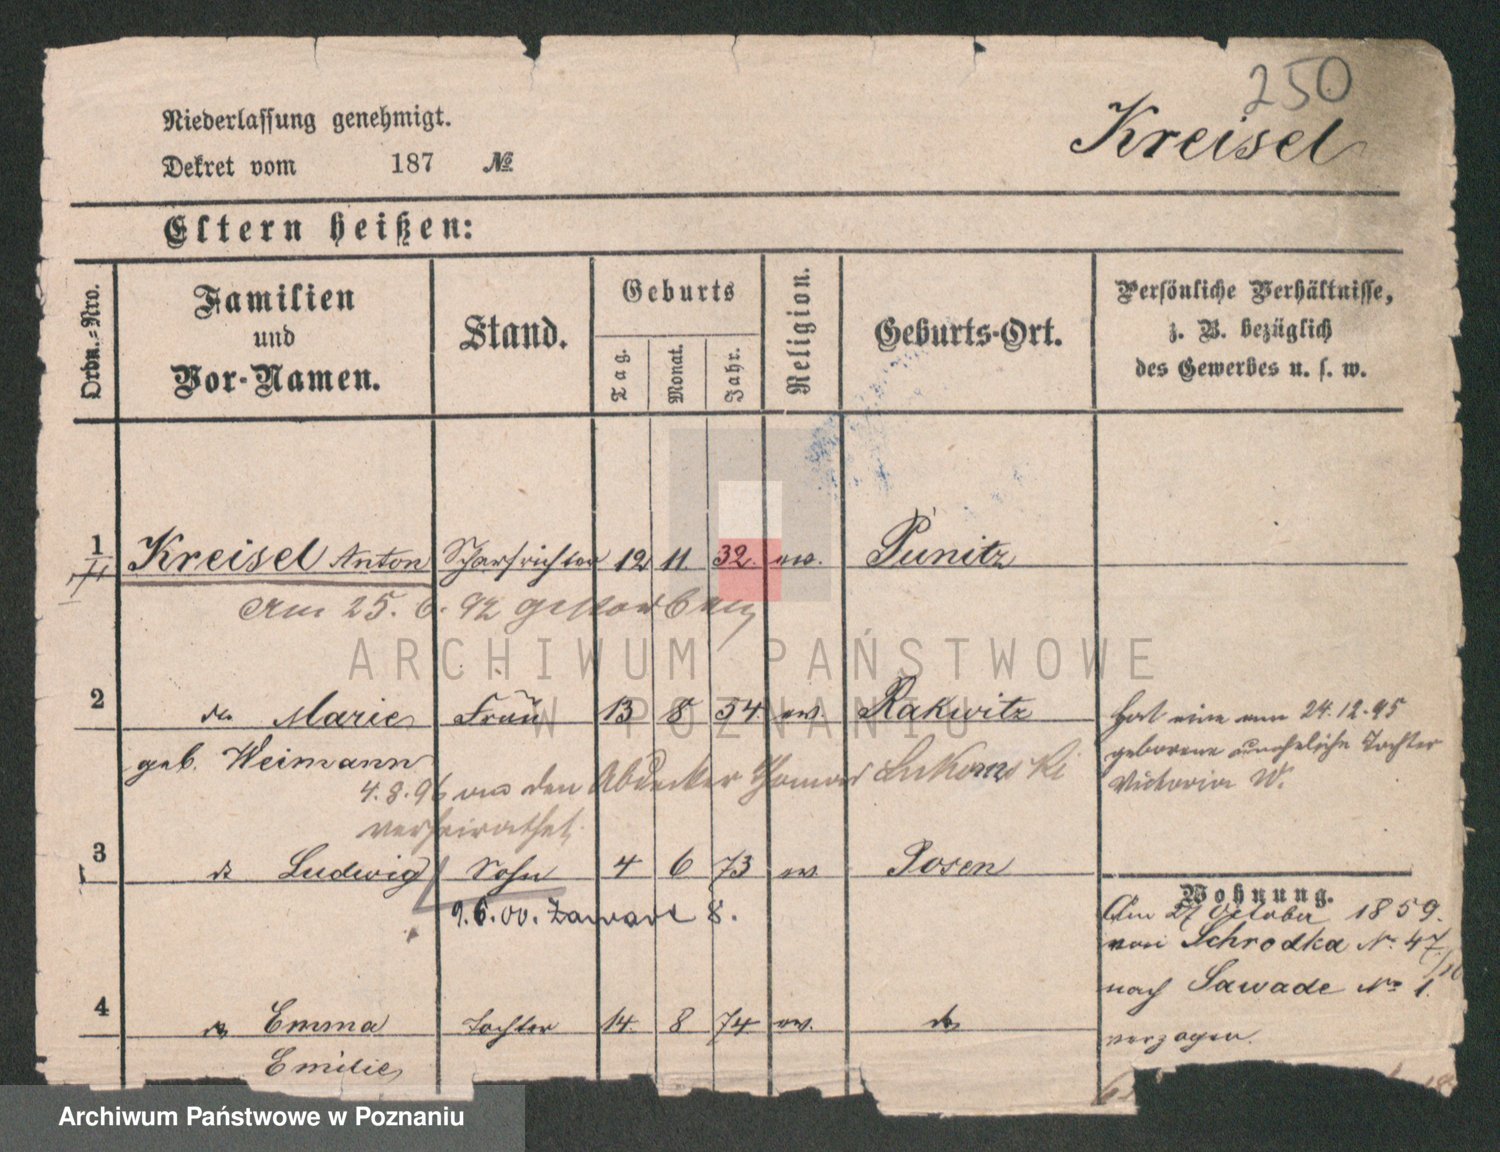 250
Kreisel
Niederlassung genehmigt.
Dekret vom 187 №
Eltern heißen:
Ordn.-Nro.
Familien
und
Vor-Namen.
Stand.
Geburts
Tag.
Monat.
Jahr.
Religion.
Geburts-Ort.
Persönliche Verhältnisse,
z. B. bezüglich
des Gewerbes u. s. w.
1 Kreisel Anton Scharfrichter 12 11 32. ev. Punitz
Am 25. 6. 92 gestorben
2 do Marie Frau 13 8 54. ev. Rakwitz
geb. Weimann
4.8.96 den Abdecker Thomas Lukomski
verheirathet.
Hat eine am 24.12.95
geborene uneheliche Tochter
Victoria W.
3 do Ludwig Sohn 4 6 73 ev Posen
9.6.00. Zawade 8.
4 do Emma Tochter 14. 8 74. ev. do
Emilie
Wohnung.
Am 27 October 1859.
von Schrodka No. 47
nach Sawade No 1.
verzogen.
ARCHIWUM PAŃSTWOWE
W POZNANIU
Archiwum Państwowe w Poznaniu